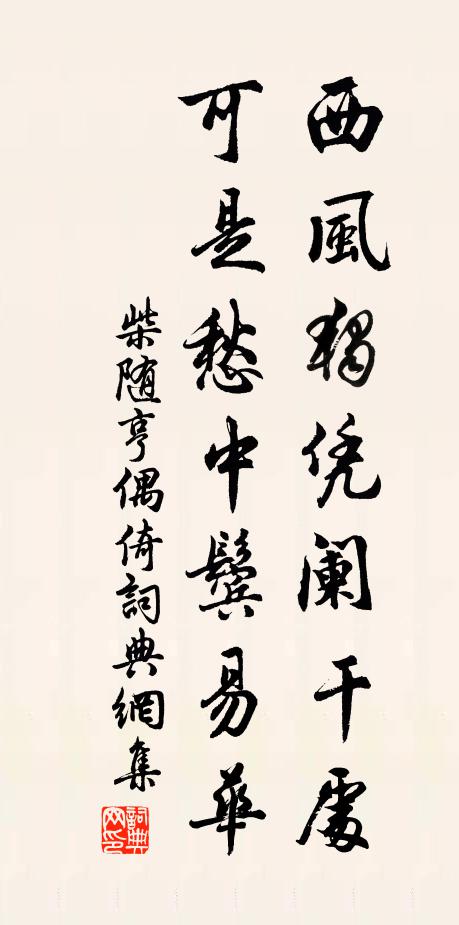 西風獨凭阑干處
可是愁中鬓易華
柴随亨偶倚詞典網集
詞典網印